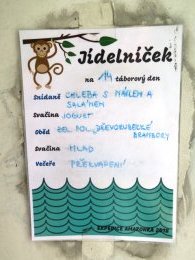 Jídelníček
na 14 táborový den
Snídaně CHLEBA S MÁSLEM A
SALÁMEM
Svačina JOGURT
Oběd ZEL. POL., DŘEVORUBECKÉ
BRAMBORY
Svačina HLAD
Večeře PŘEKVAPENÍ
EXPEDICE AMAZONKA 2018